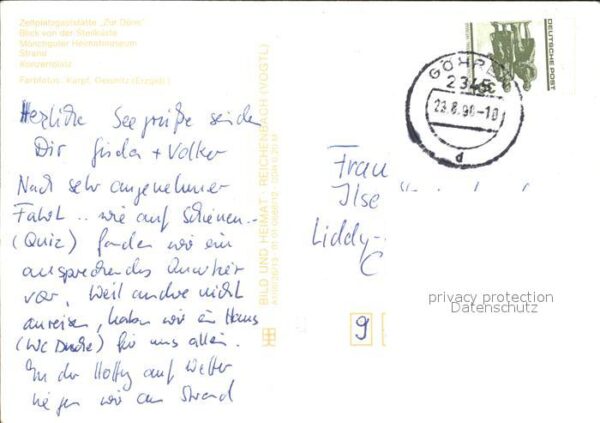 Zeltplatzgaststätte „Zur Düne“
Blick von der Steilküste
Mönchguter Heimatmuseum
Strand
Konzertplatz
Farbfotos: Kämpf, Oelsnitz (Erzgeb.)
Herzliche Seegrüße senden
Dir Gisela + Volker
Nach sehr angenehmer
Fahrt .. wie auf Schienen..
(Quiz) fanden wir ein
ansprechendes Quartier
vor. Weil andre nicht
anreisen, haben wir ein Haus
(WC Dusche) für uns allein.
In der Hoffg auf Wetter
liegen wir am Strand
BILD UND HEIMAT · REICHENBACH (VOGTL)
DEUTSCHE POST
GÖHREN
2345
23.8.90-10
d
Frau
Ilse
Liddy-
privacy protection
Datenschutz
9